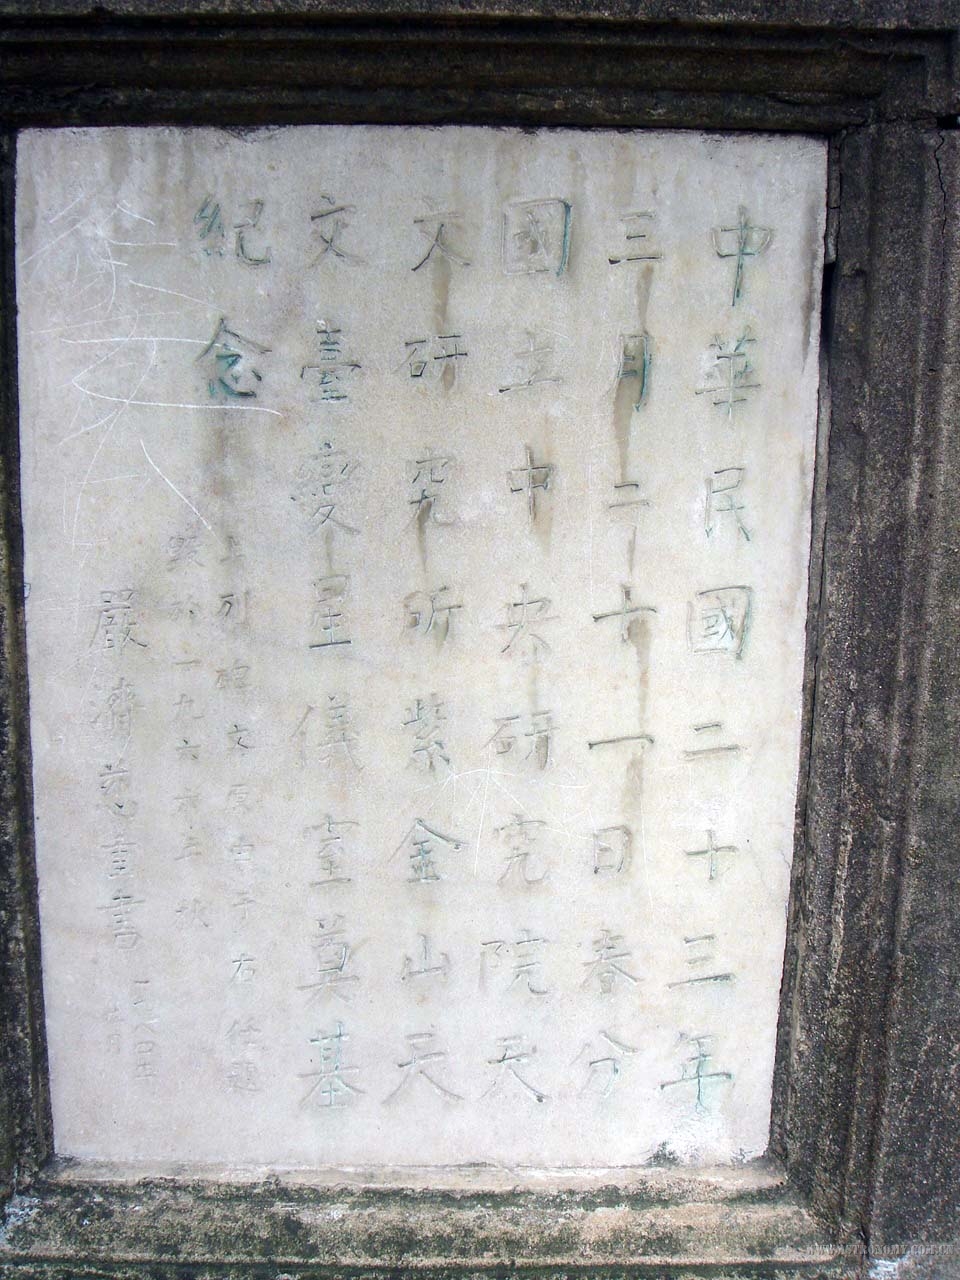 中華民國二十三年
三月二十一日春分
國立中央研究院天
文研究所紫金山天
文臺變星儀室奠基
紀念
上列碑文原由于右任題
毀於一九六六年秋
嚴濟慈重書
一九八四年
九月